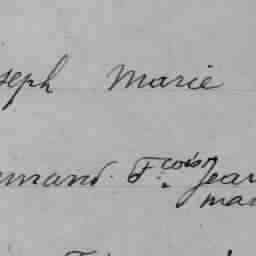 seph Marie
rmand. F.çois Jean
mar